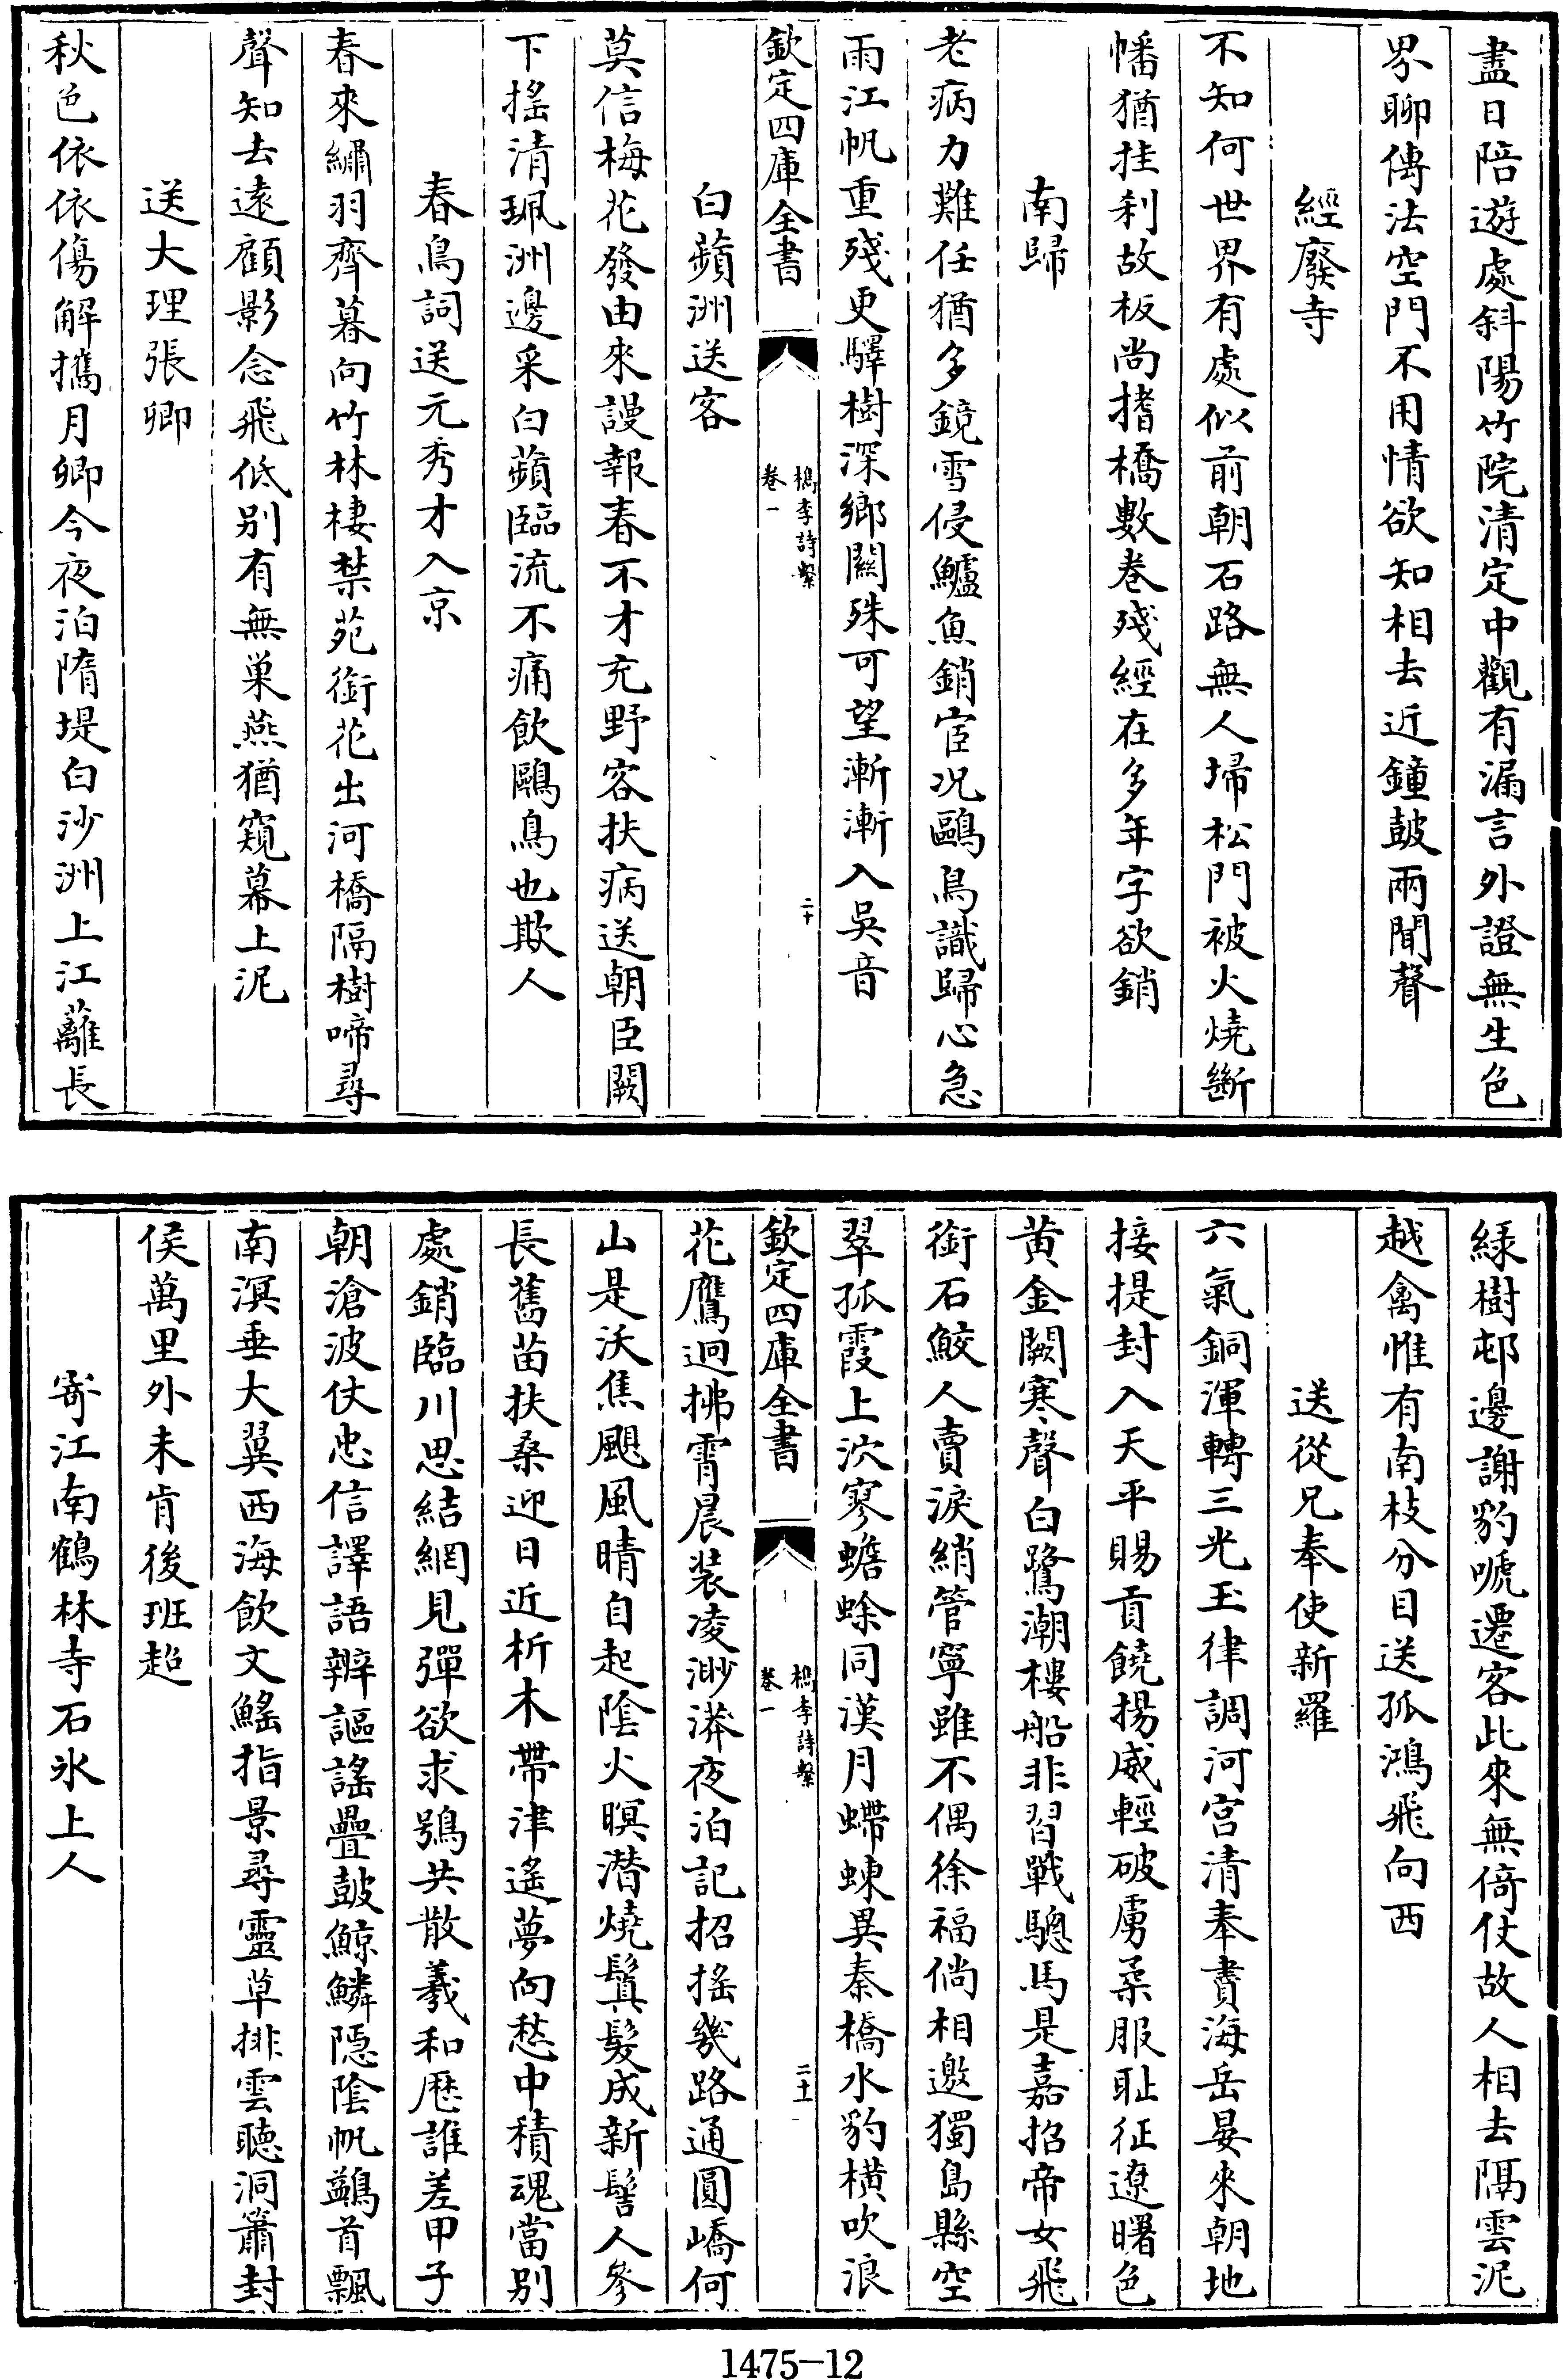 盡日陪遊處斜陽竹院清定中觀有漏言外證無生色
界聊傳法空門不用情欲知相去近鐘鼓兩聞聲
經廢寺
不知何世界有處似前朝石路無人埽松門被火燒斷
幡猶挂刹故板尚搘橋數卷殘經在多年字欲銷
南歸
老病力難任猶多鏡雪侵鱸魚銷宦况鷗鳥識歸心急
雨江帆重殘更驛樹深鄉關殊可望漸漸入吳音
欽定四庫全書
檇李詩繫
卷一
二十
白蘋洲送客
莫信梅花發由來謾報春不才充野客扶病送朝臣闕
下搖清珮洲邊采白蘋臨流不痛飲鷗鳥也欺人
春鳥詞送元秀才入京
春來繡羽齊暮向竹林棲禁苑銜花出河橋隔樹啼尋
聲知去遠顧影念飛低别有無巢燕猶窺幕上泥
送大理張卿
秋色依依傷解攜月卿今夜泊隋堤白沙洲上江蘺長
綠樹邨邊謝豹嗁遷客此來無倚仗故人相去隔雲泥
越禽惟有南枝分目送孤鴻飛向西
送從兄奉使新羅
六氣銅渾轉三光玉律調河宫清奉賮海岳晏來朝地
接提封入天平賜貢饒揚威輕破虜柔服耻征遼曙色
黄金闕寒聲白鷺潮樓船非習戰驄馬是嘉招帝女飛
銜石鮫人賣淚綃管寧雖不偶徐福倘相邀獨島縣空
翠孤霞上泬寥蟾蜍同漢月螮蝀異秦橋水豹横吹浪
欽定四庫全書
檇李詩繫
卷一
二十一
花鷹迥拂霄晨装凌渺漭夜泊記招搖幾路通圓嶠何
山是沃焦颶風晴自起陰火暝潛燒鬒髮成新髻人參
長舊苗扶桑迎日近析木帶津遙夢向愁中積魂當别
處銷臨川思結網見彈欲求鴞共散羲和厯誰差甲子
朝滄波仗忠信譯語辨謳謠疊鼓鯨鱗隱陰帆鷁首飄
南溟垂大翼西海飲文鰩指景尋靈草排雲聽洞簫封
侯萬里外未肯後班超
寄江南鶴林寺石氷上人
1475-12